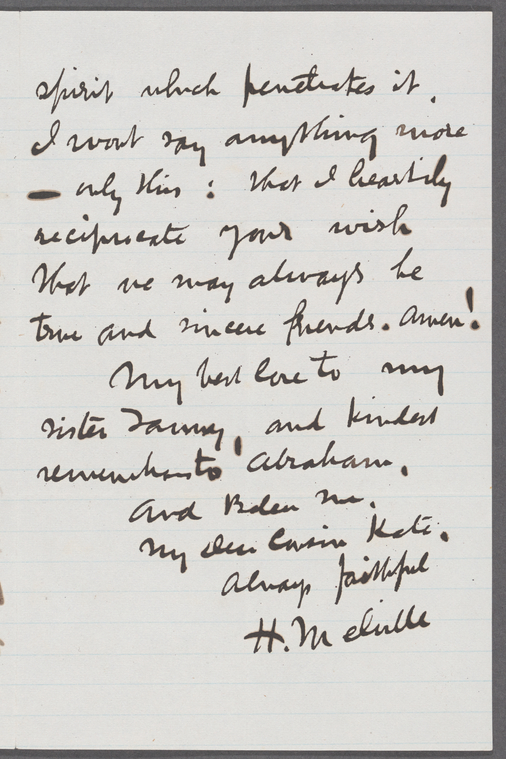 spirit which penetrates it.
I wont say anything more
— only this: that I heartily
reciprocate your wish
that we may always be
true and sincere friends. Amen!
My best love to my
sister Fanny, and kindest
to Abraham.
And me,
My dear Cousin Kate.
Always faithful
H. Melville